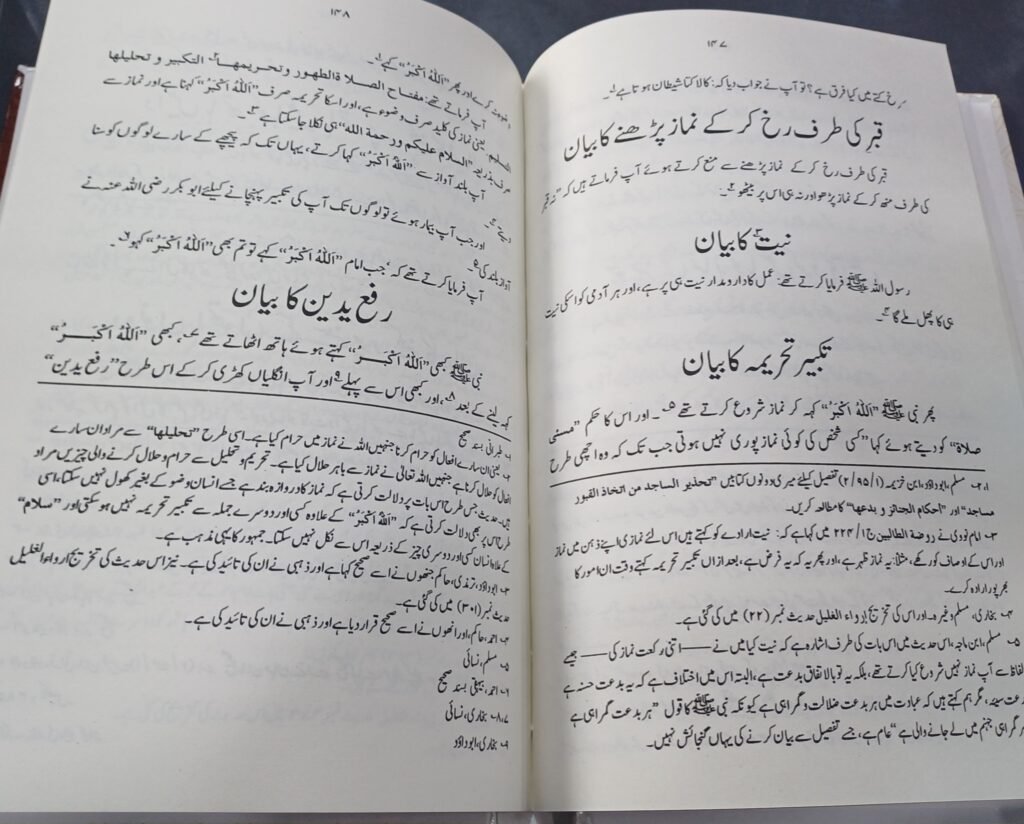 ۱۴۷
سرخ کتے میں کیا فرق ہے؟ تو آپ نے جواب دیا کہ: کالا کتا شیطان ہوتا ہے۔۱
قبر کی طرف رخ کر کے نماز پڑھنے کا بیان
قبر کی طرف رخ کر کے نماز پڑھنے سے منع کرتے ہوئے آپ فرماتے ہیں کہ ”نہ قبر
کی طرف منھ کر کے نماز پڑھو اور نہ ہی اس پر بیٹھو“۔۲
نیت۳ کا بیان
رسول اللہ ﷺ فرمایا کرتے تھے: عمل کا دارومدار نیت ہی پر ہے، اور ہر آدمی کو اسکی نیت
ہی کا پھل ملے گا۴۔
تکبیر تحریمہ کا بیان
پھر نبی ﷺ ”اَللّٰهُ اَكْبَرُ“ کہہ کر نماز شروع کرتے تھے۵۔ اور اس کا حکم ”مسئی
صلاۃ“ کو دیتے ہوئے کہا ”کسی شخص کی کوئی نماز پوری نہیں ہوتی جب تک کہ وہ اچھی طرح
۱،۲۔ مسلم، ابوداؤد، ابن خزیمہ (۱/۹۵/۲) تفصیل کیلئے میری دونوں کتابیں ”تحذیر الساجد من اتخاذ القبور
مساجد“ اور ”احکام الجنائز و بدعها“ کا مطالعہ کریں۔
۳۔ امام نووی نے روضۃ الطالبین ج۱/۲۲۴ میں کہا ہے کہ: نیت ارادے کو کہتے ہیں اس لئے نمازی اپنے ذہن میں نماز
اور اس کے اوصاف کو رکھے، مثلاً: یہ نماز ظہر ہے، اور پھر یہ کہ یہ فرض ہے، بعد ازاں تکبیر تحریمہ کہتے وقت ان امور کا
بھرپور ارادہ کرے۔
۴۔ بخاری، مسلم وغیرہ، اور اس کی تخریج ارواء الغلیل حدیث نمبر (۲۲) میں کی گئی ہے۔
۵۔ مسلم، ابن ماجہ، اس حدیث میں اس بات کی طرف اشارہ ہے کہ نیت کیا میں نے —— اتنی رکعت نماز کی —— جیسے
الفاظ سے آپ نماز نہیں شروع کیا کرتے تھے، بلکہ یہ تو بالاتفاق بدعت ہے، البتہ اس میں اختلاف ہے کہ یہ بدعت حسنہ ہے
بدعت سیئہ، مگر ہم کہتے ہیں کہ عبادت میں ہر بدعت ضلالت و گمراہی ہے کیونکہ نبی ﷺ کا قول ”ہر بدعت گمراہی ہے
ہر گمراہی جہنم میں لے جانے والی ہے“ عام ہے، جسے تفصیل سے بیان کرنے کی یہاں گنجائش نہیں۔
۱۴۸
وضو نہ کرے اور پھر ”اَللّٰهُ اَكْبَرُ“ کہے۱۔
آپ فرماتے تھے: مفتاح الصلاة الطهور و تحريمها۲ التكبير و تحليلها
التسليم۔ یعنی نماز کی کلید صرف وضوء ہے، اور اسکا تحریمہ صرف ”اَللّٰهُ اَكْبَرُ“ کہنا ہے اور نماز سے
صرف بذریعہ ”السلام عليكم ورحمة الله“ ہی نکلا جا سکتا ہے۳۔
آپ بلند آواز سے ”اَللّٰهُ اَكْبَرُ“ کہا کرتے، یہاں تک کہ پیچھے کے سارے لوگوں کو سنا
دیتے۴۔
اور جب آپ بیمار ہوئے تو لوگوں تک آپ کی تکبیر پہنچانے کیلئے ابو بکر رضی اللہ عنہ نے
آواز بلند کی۵۔
آپ فرمایا کرتے تھے کہ ’جب امام ”اَللّٰهُ اَكْبَرُ“ کہے تو تم بھی ”اَللّٰهُ اَكْبَرُ“ کہو۶۔
رفع یدین کا بیان
نبی ﷺ کبھی ”اَللّٰهُ اَكْبَرُ“ کہتے ہوئے ہاتھ اٹھاتے تھے۷، کبھی ”اَللّٰهُ اَكْبَرُ“
کہہ لینے کے بعد۸، اور کبھی اس سے پہلے۹ اور آپ انگلیاں کھڑی کر کے اس طرح ”رفع یدین“
۱۔ طبرانی بسند صحیح
۲۔ یعنی ان سارے افعال کو حرام کرنا جنہیں اللہ نے نماز میں حرام کیا ہے۔ اسی طرح ”تحلیلها“ سے مراد ان سارے
افعال کو حلال کرنا ہے جنہیں اللہ تعالی نے نماز سے باہر حلال کیا ہے۔ تحریم و تحلیل سے حرام و حلال کرنے والی چیزیں مراد
ہیں، حدیث جس طرح اس بات پر دلالت کرتی ہے کہ نماز کا دروازہ بند ہے جسے انسان وضو کے بغیر کھول نہیں سکتا، اسی
طرح اس پر بھی دلالت کرتی ہے کہ ”اَللّٰهُ اَكْبَرُ“ کے علاوہ کسی اور دوسرے جملہ سے تکبیر تحریمہ نہیں ہو سکتی اور ”سلام“
کے علاوہ انسان کسی اور دوسری چیز کے ذریعہ اس سے نکل نہیں سکتا۔ جمہور کا یہی مذہب ہے۔
۳۔ ابوداؤد، ترمذی، حاکم جنھوں نے اسے صحیح کہا ہے اور ذہبی نے ان کی تائید کی ہے۔ نیز اس حدیث کی تخریج ارواء الغلیل
حدیث نمبر (۳۰۱) میں کی گئی ہے۔
۴۔ احمد، حاکم، اور انھوں نے اسے صحیح قرار دیا ہے اور ذہبی نے ان کی تائید کی ہے۔
۵۔ مسلم، نسائی
۶۔ احمد، بیہقی بسند صحیح
۷،۸۔ بخاری، نسائی
۹۔ بخاری، ابوداؤد